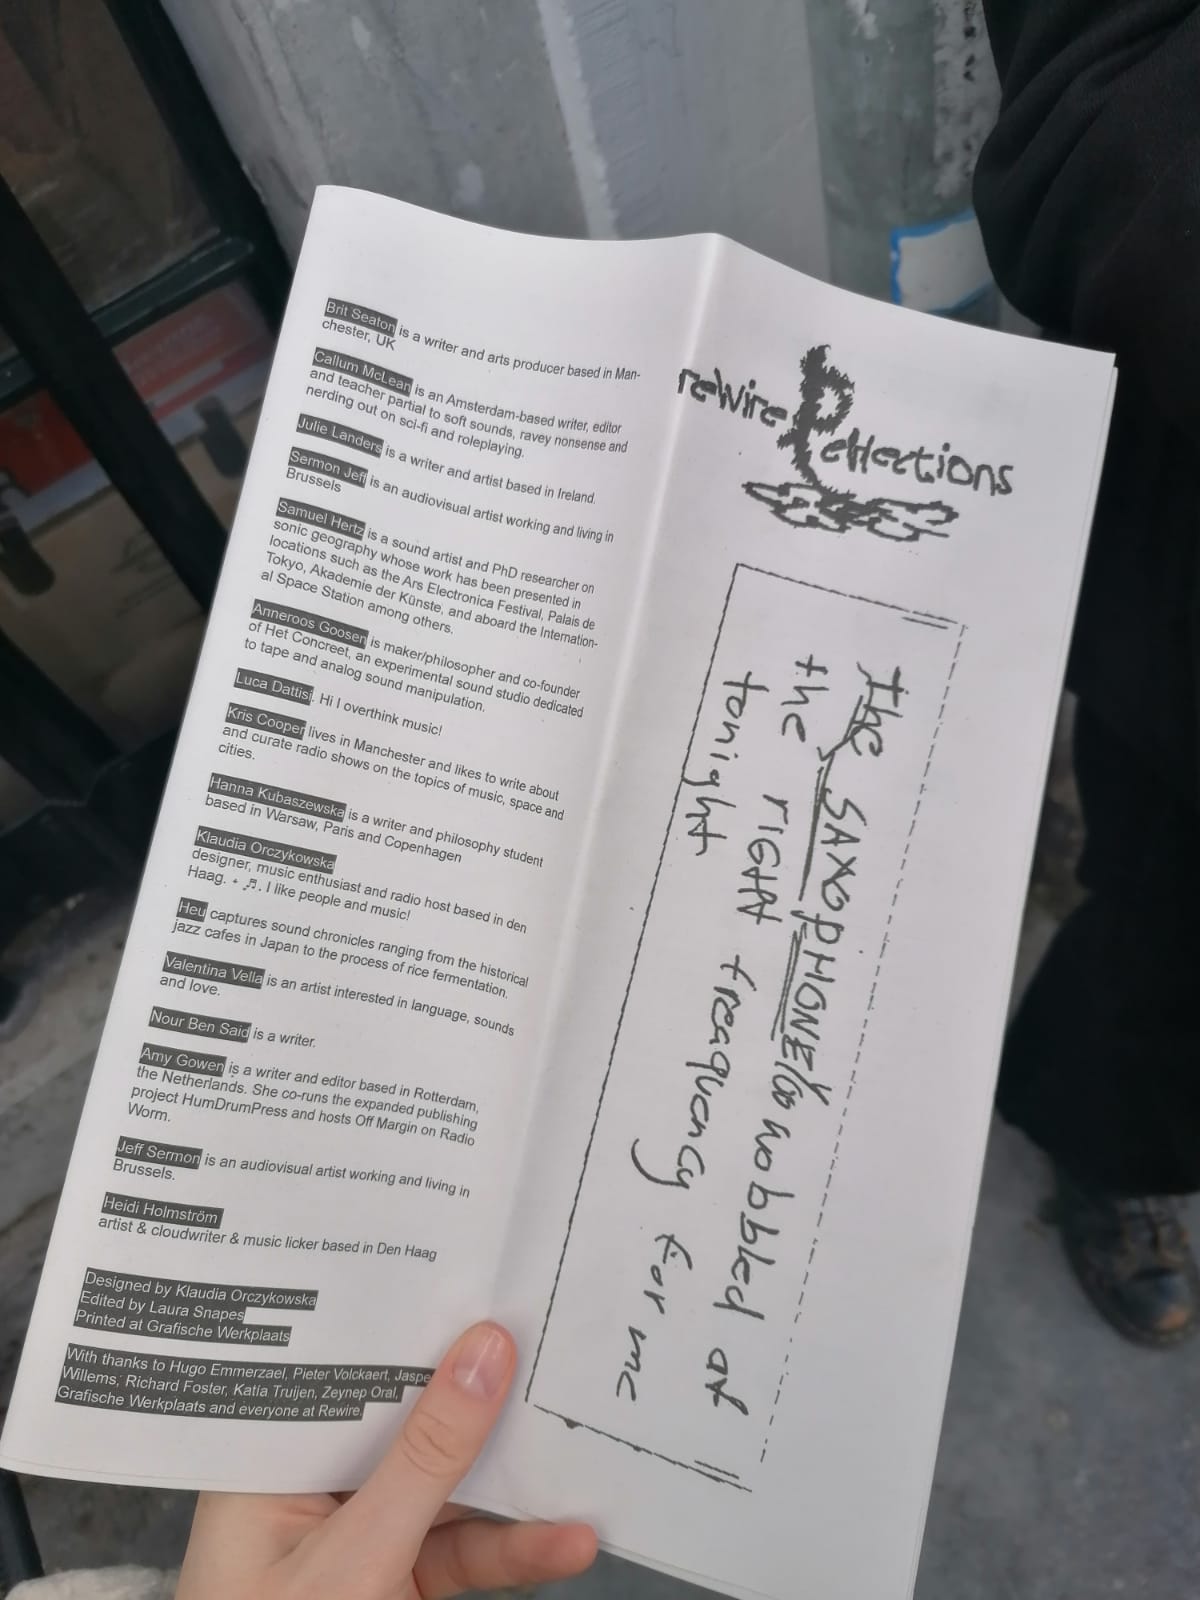 Brit Seaton is a writer and arts producer based in Man-
chester, UK
Callum McLean is an Amsterdam-based writer, editor
and teacher partial to soft sounds, ravey nonsense and
nerding out on sci-fi and roleplaying.
Julie Landers is a writer and artist based in Ireland.
Sermon Jeff is an audiovisual artist working and living in
Brussels
Samuel Hertz is a sound artist and PhD researcher on
sonic geography whose work has been presented in
locations such as the Ars Electronica Festival, Palais de
Tokyo, Akademie der Künste, and aboard the Internation-
al Space Station among others.
Anneroos Goosen is maker/philosopher and co-founder
of Het Concreet, an experimental sound studio dedicated
to tape and analog sound manipulation.
Luca Dattisi. Hi I overthink music!
Kris Cooper lives in Manchester and likes to write about
and curate radio shows on the topics of music, space and
cities.
Hanna Kubaszewska is a writer and philosophy student
based in Warsaw, Paris and Copenhagen
Klaudia Orczykowska
designer, music enthusiast and radio host based in den
Haag. + ♬. I like people and music!
Heu captures sound chronicles ranging from the historical
jazz cafes in Japan to the process of rice fermentation.
Valentina Vella is an artist interested in language, sounds
and love.
Nour Ben Said is a writer.
Amy Gowen is a writer and editor based in Rotterdam,
the Netherlands. She co-runs the expanded publishing
project HumDrumPress and hosts Off Margin on Radio
Worm.
Jeff Sermon is an audiovisual artist working and living in
Brussels.
Heidi Holmström
artist & cloudwriter & music licker based in Den Haag
Designed by Klaudia Orczykowska
Edited by Laura Snapes
Printed at Grafische Werkplaats
With thanks to Hugo Emmerzael, Pieter Volckaert, Jaspe
Willems, Richard Foster, Katia Truijen, Zeynep Oral,
Grafische Werkplaats and everyone at Rewire.
reWire Reflections
the SAXOPHONE wobbled at
the RIGHT freaquency for me
tonight